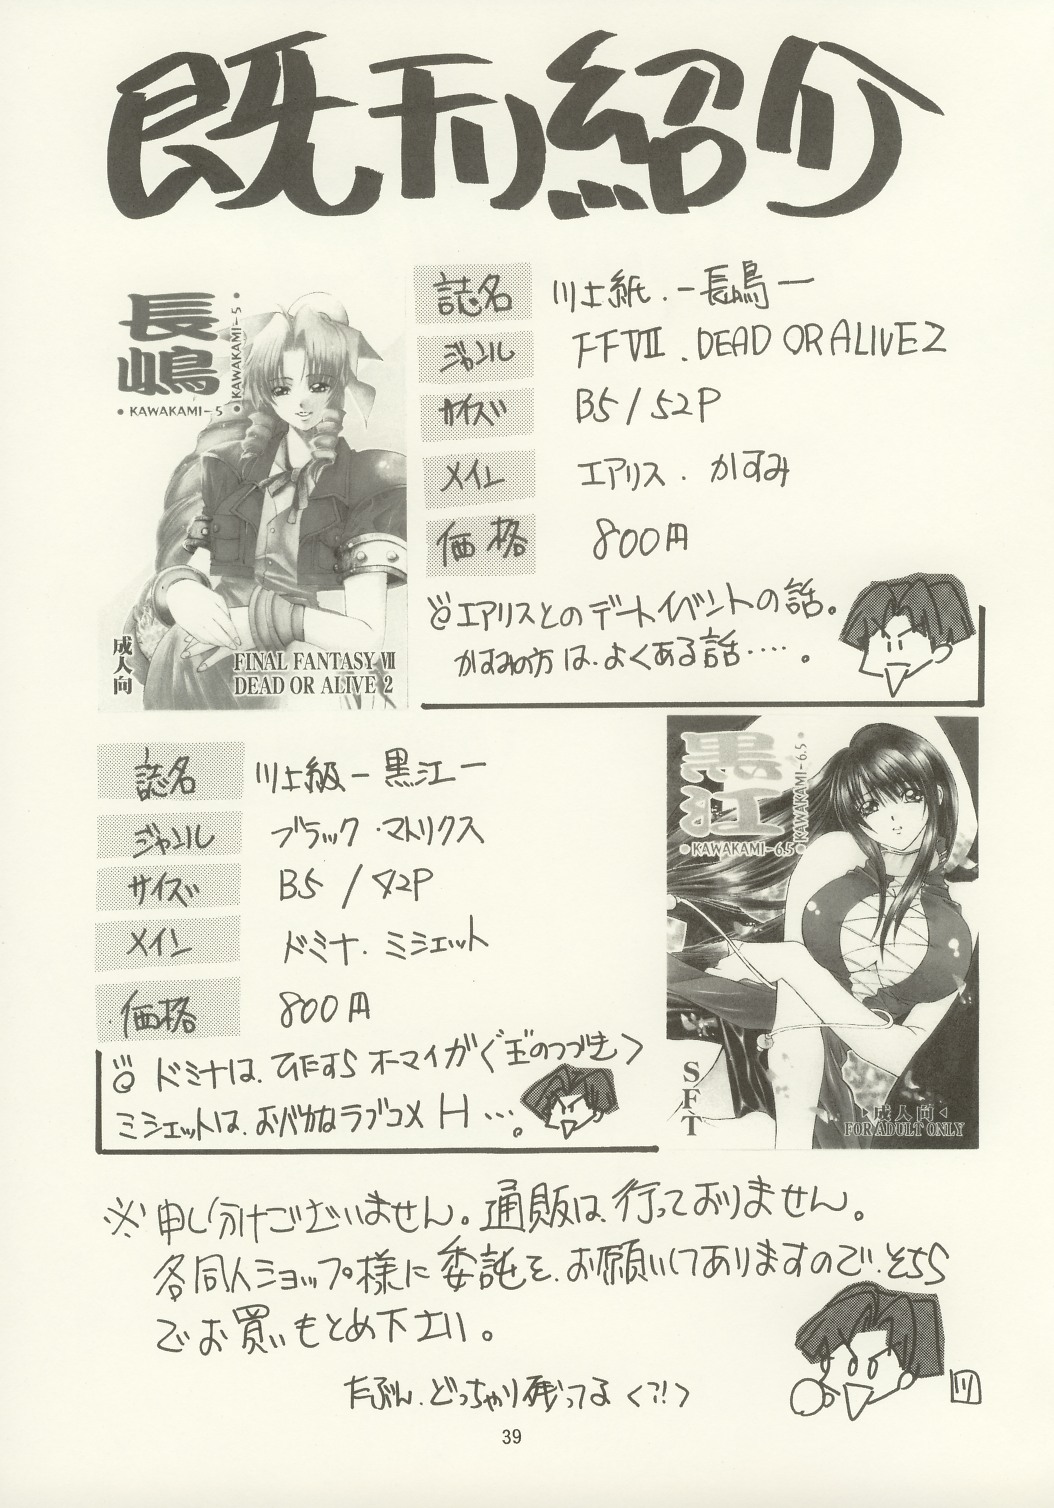 既刊紹介
長嶋
• KAWAKAMI-5
• KAWAKAMI-5 •
成人向
FINAL FANTASY Ⅶ
DEAD OR ALIVE 2
誌名 川上紙.ー長嶋ー
ジャンル FFⅦ.DEAD OR ALIVE2
サイズ B5/52P
メイン エアリス.かすみ
価格 800円
エアリスとのデートイベントの話。
かすみの方は、よくある話・・・・。
誌名 川上級ー黒江ー
ジャンル ブラック・マトリクス
サイズ B5/42P
メイン ドミナ.ミシェット
価格 800円
ドミナは、ひたすらオーマイガ〈玉のつづき〉
ミシェットは、おバカなラブコメH・・・。
黒江
•KAWAKAMI-6.5•
KAWAKAMI-6.5•
SFT
▷成人向◁
FOR ADULT ONLY
※申し分けございません。通販は、行っておりません。
各同人ショップ様に委託を、お願いしてありますので、そちら
でお買いもとめ下さい。
たぶん、どっちゃり残ってる〈?!〉
川
39